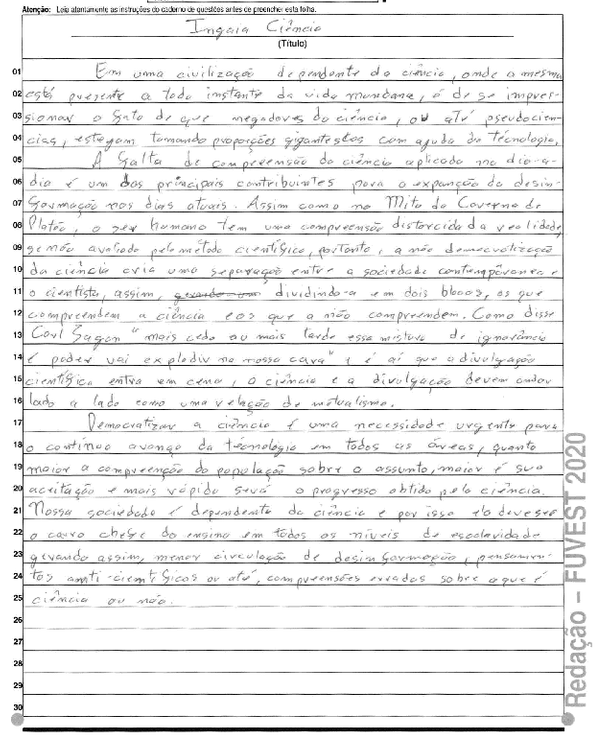 Atenção: Leia atentamente as instruções do caderno de questões antes de preencher esta folha.
Ingaia Ciência
(Título)
01 Em uma civilização dependente da ciência, onde a mesma
02 está presente a todo instante da vida mundana, é de se impres-
03 sionar o fato de que negadores da ciência, ou até pseudocien-
04 cias, estejam tomando proporções gigantescas com ajuda da tecnologia.
05 A falta de compreensão da ciência aplicada no dia-a-
06 dia é um dos principais contribuintes para a expanção da desin-
07 formação nos dias atuais. Assim como no Mito da Caverna de
08 Platão, o ser humano tem uma compreensão distorcida da realidade
09 se não avaliado pelo método científico, portanto, a não democratização
10 da ciência cria uma separação entre a sociedade contemporânea e
11 o cientista, assim, dividindo-a em dois blocos, os que
12 compreendem a ciência e os que a não compreendem. Como disse
13 Carl Sagan "mais cedo ou mais tarde essa mistura de ignorância
14 e poder vai explodir na nossa cara" e é aí que a divulgação
15 científica entra em cena, a ciência e a divulgação devem andar
16 lado a lado como uma relação de mutualismo.
17 Democratizar a ciência é uma necessidade urgente para
18 o contínuo avanço da técnologia em todas as áreas, quanto
19 maior a compreenção da população sobre o assunto, maior é sua
20 aceitação e mais rápido será o progresso obtido pela ciência.
21 Nossa sociedade é dependente da ciência e por isso ela deve ser
22 o carro chefe do ensino em todos os níveis de escolaridade
23 gerando assim, menor circulação de desinformação, pensamen-
24 tos anti-científicos ou até, compreensões erradas sobre o que é
25 ciência ou não.
26
27
28
29
30
Redação – FUVEST 2020